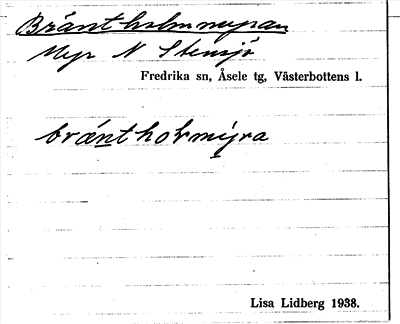 Bräntholmmyran
Myr N Stensjö
Fredrika sn, Åsele tg, Västerbottens l.
bräntholmmyra
Lisa Lidberg 1938.